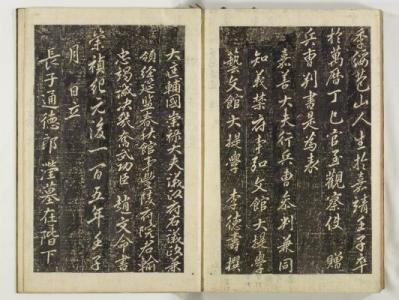 季綏苞山人生於嘉靖壬子卒
於萬曆丁巳官至觀察使 贈
兵曹判書是為表
嘉善大夫行兵曹參判兼同
知義禁府事弘文館大提學
藝文館大提學 李德壽撰
大匡輔國崇祿大夫議政府右議政兼
領經筵監春秋館事豐陵府院君輸
忠竭誠決幾奮武功臣 趙文命書
崇禎紀元後一百五年壬子
月 日立
長子通德郎瀅墓在階下